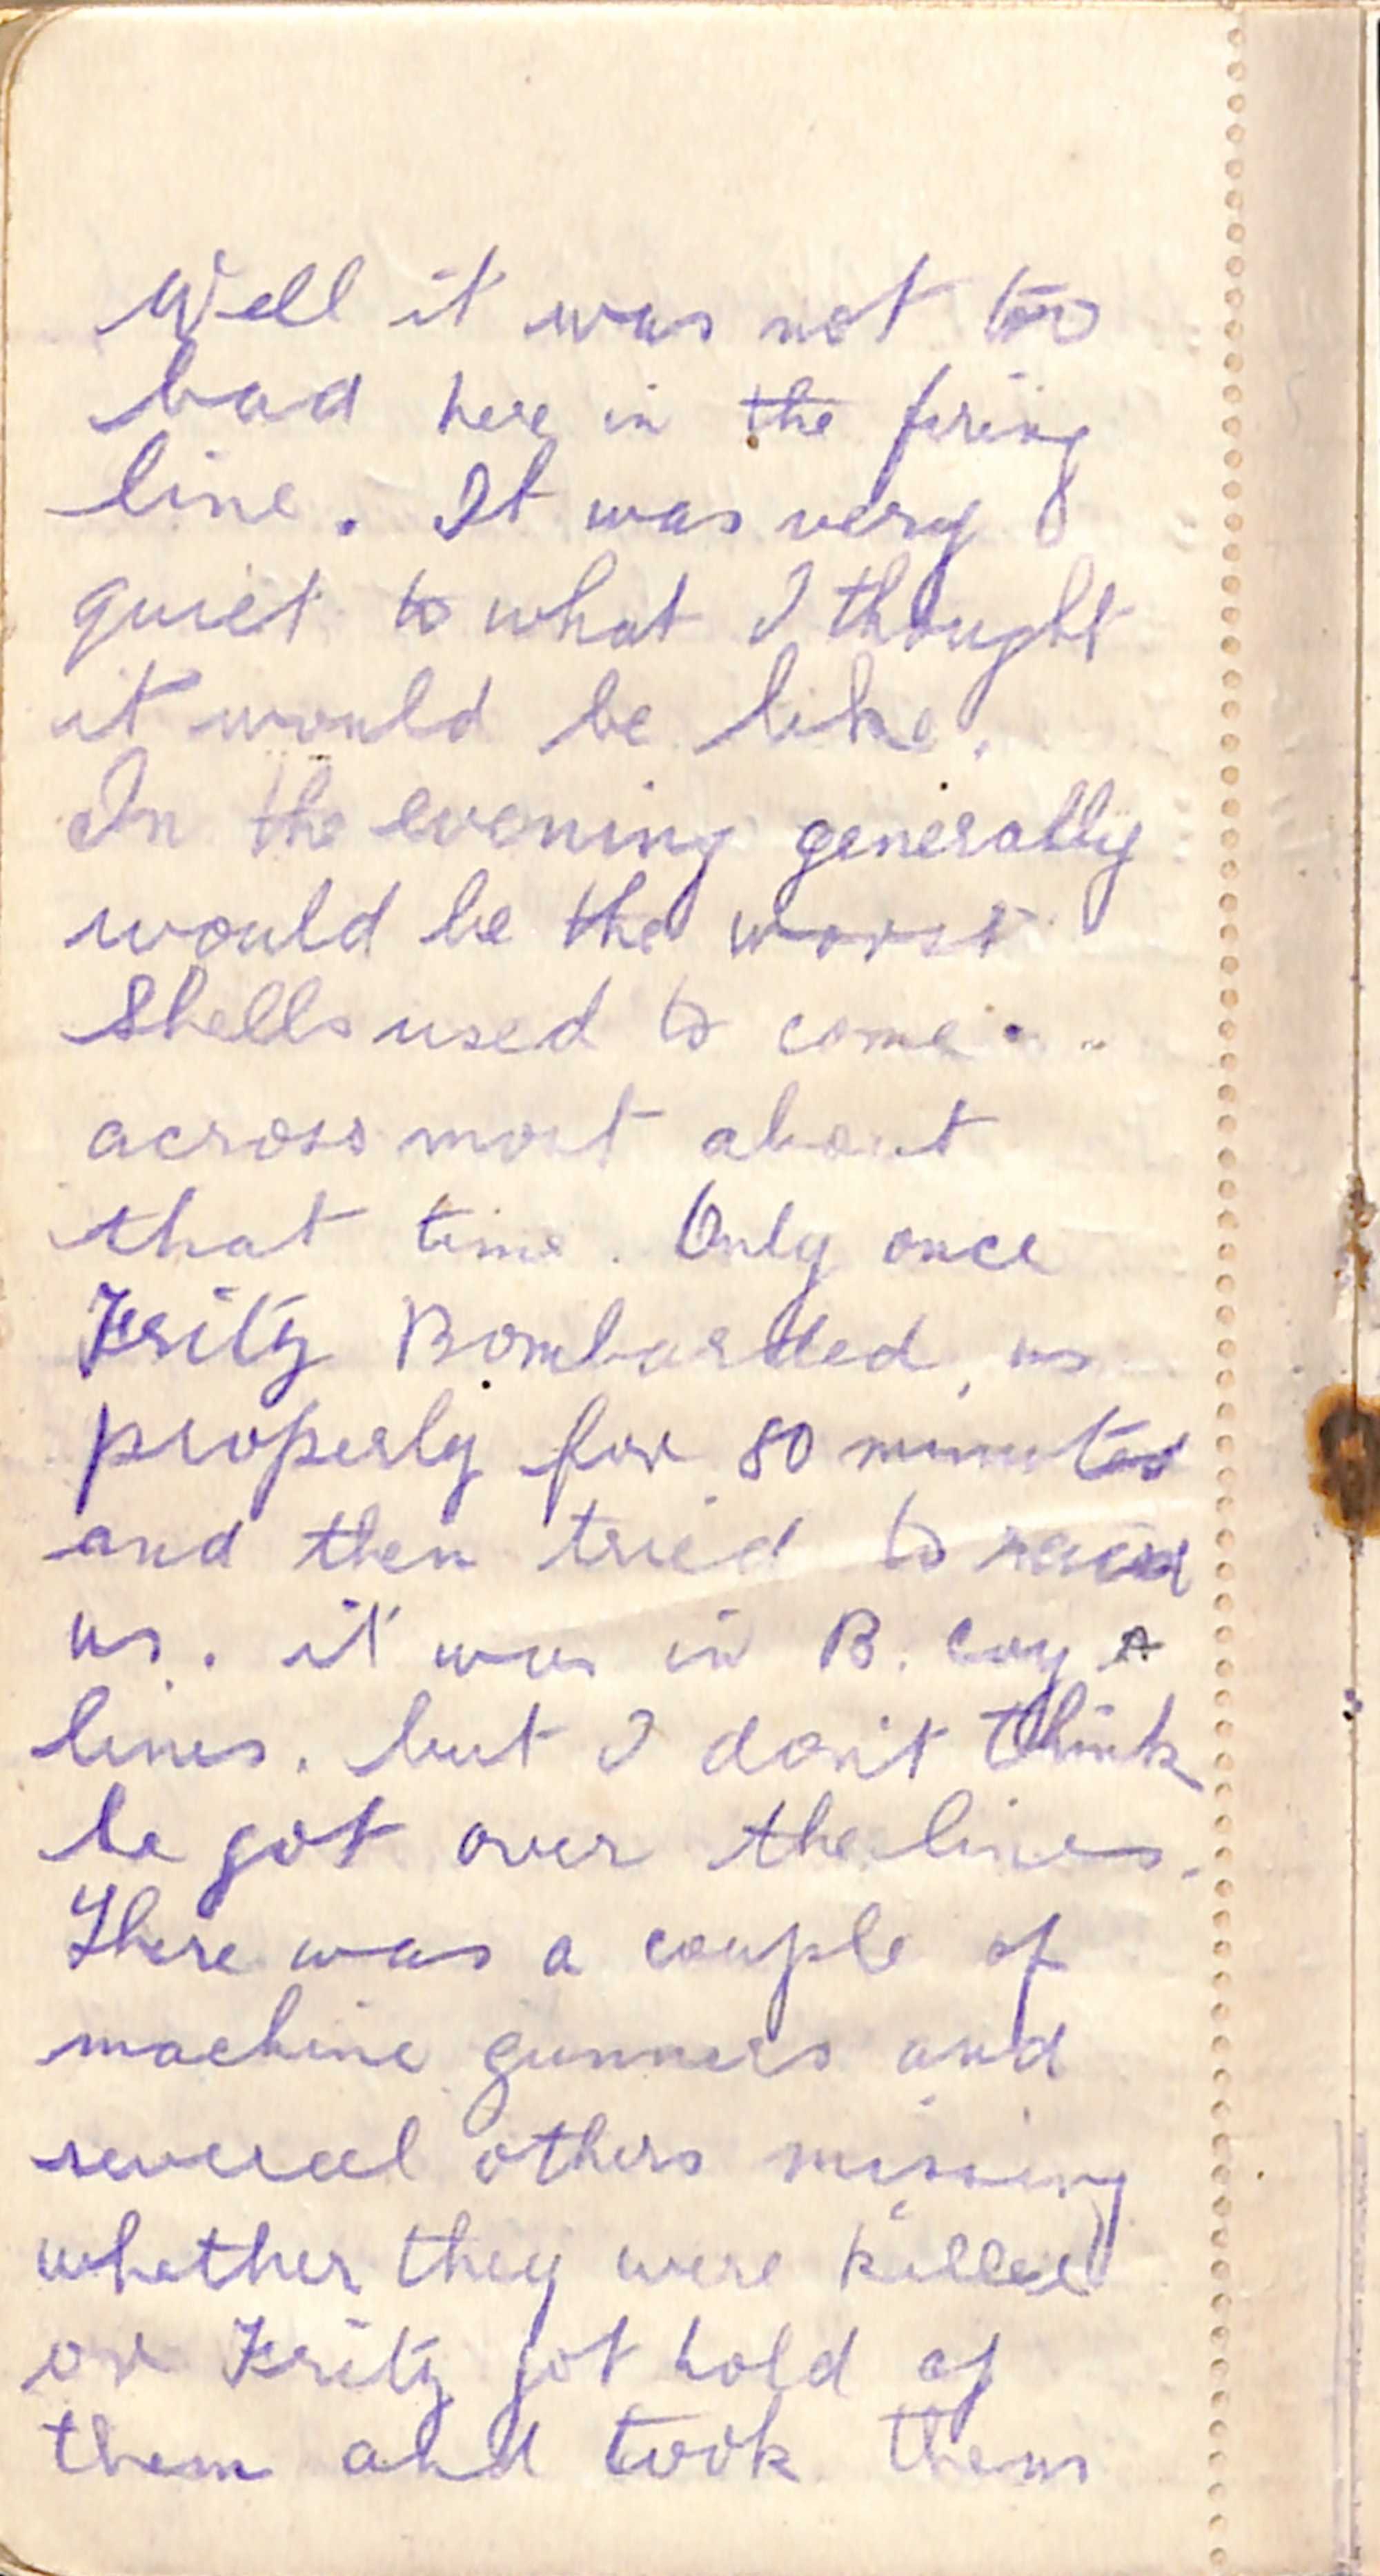 Well it was not too
bad here in the firing
line. It was very
quiet to what I thought
it would be like.
In the evening generally
would be the worst
Shells used to come
across most about
that time. Only once
Fritz Bombarded, us
properly for 80 minutes
and then tried to
us. it was in B. Coy
lines. but I don't think
he got over the lines.
There was a couple of
machine gunners and
several others missing
whether they were killed
or Fritz got hold of
them and took them